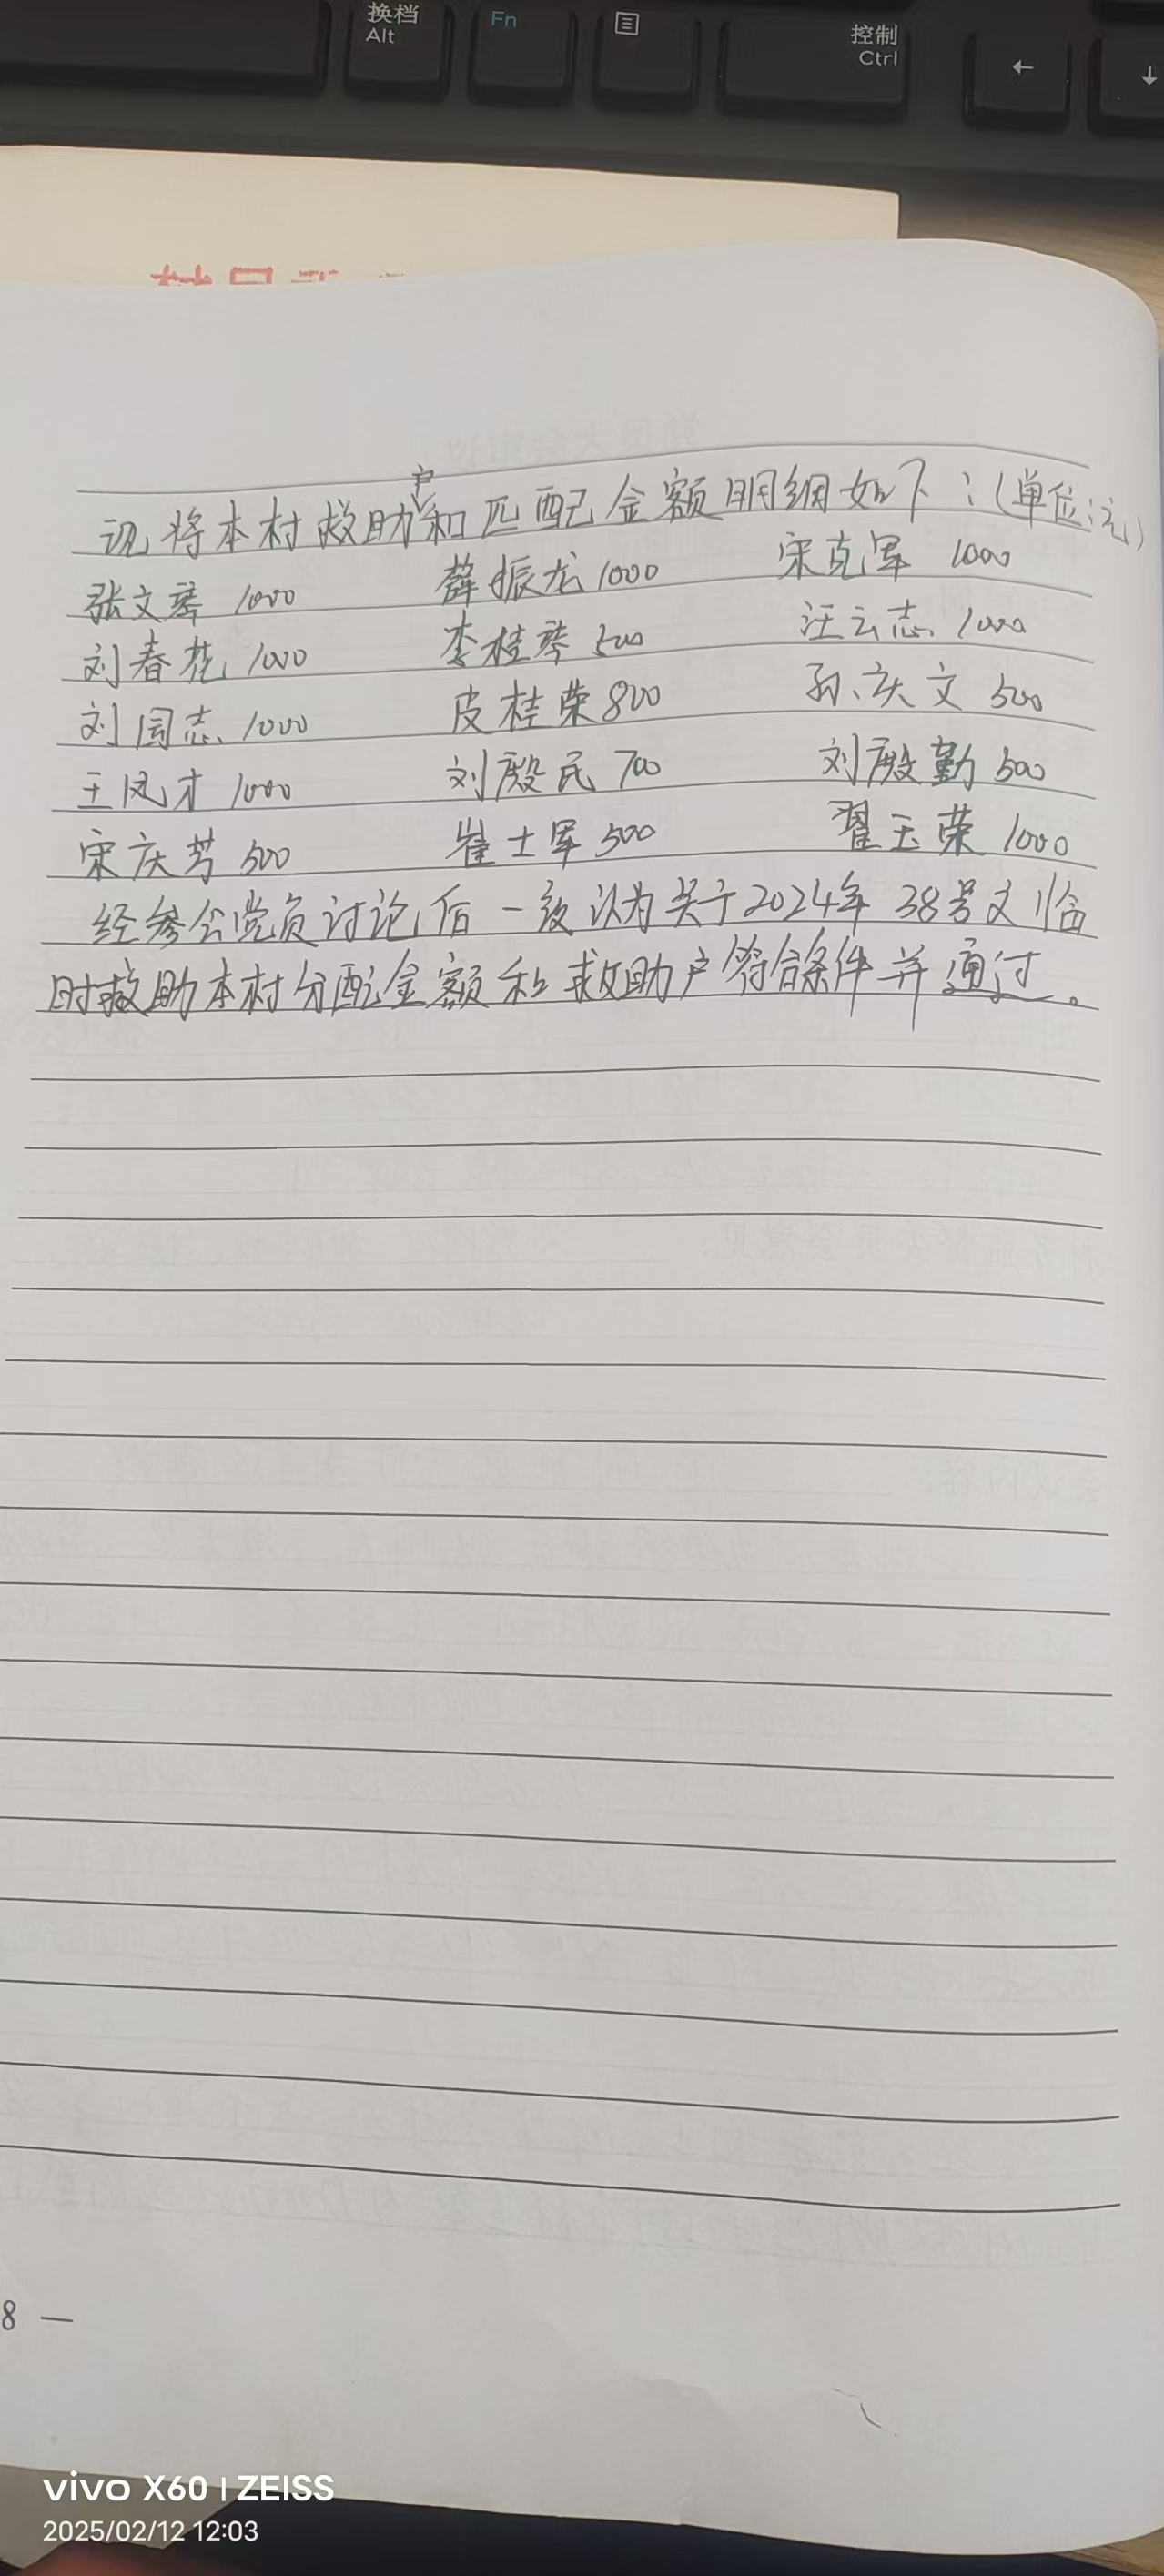 换档
Alt
Fn
控制
Ctrl
←
↓
现将本村救助户和匹配金额明细如下：（单位：元）
张文琴 1000 薛振龙 1000 宋克军 1000
刘春花 1000 李桂琴 500 汪云志 1000
刘国志 1000 皮桂荣 800 孙庆文 500
王凤才 1000 刘殿民 700 刘殿勤 500
宋庆芳 500 崔士军 500 翟玉荣 1000
经参会党员讨论后一致认为关于2024年38号文临
时救助本村分配金额和救助户符合条件并通过。
8 —
vivo X60 | ZEISS
2025/02/12 12:03